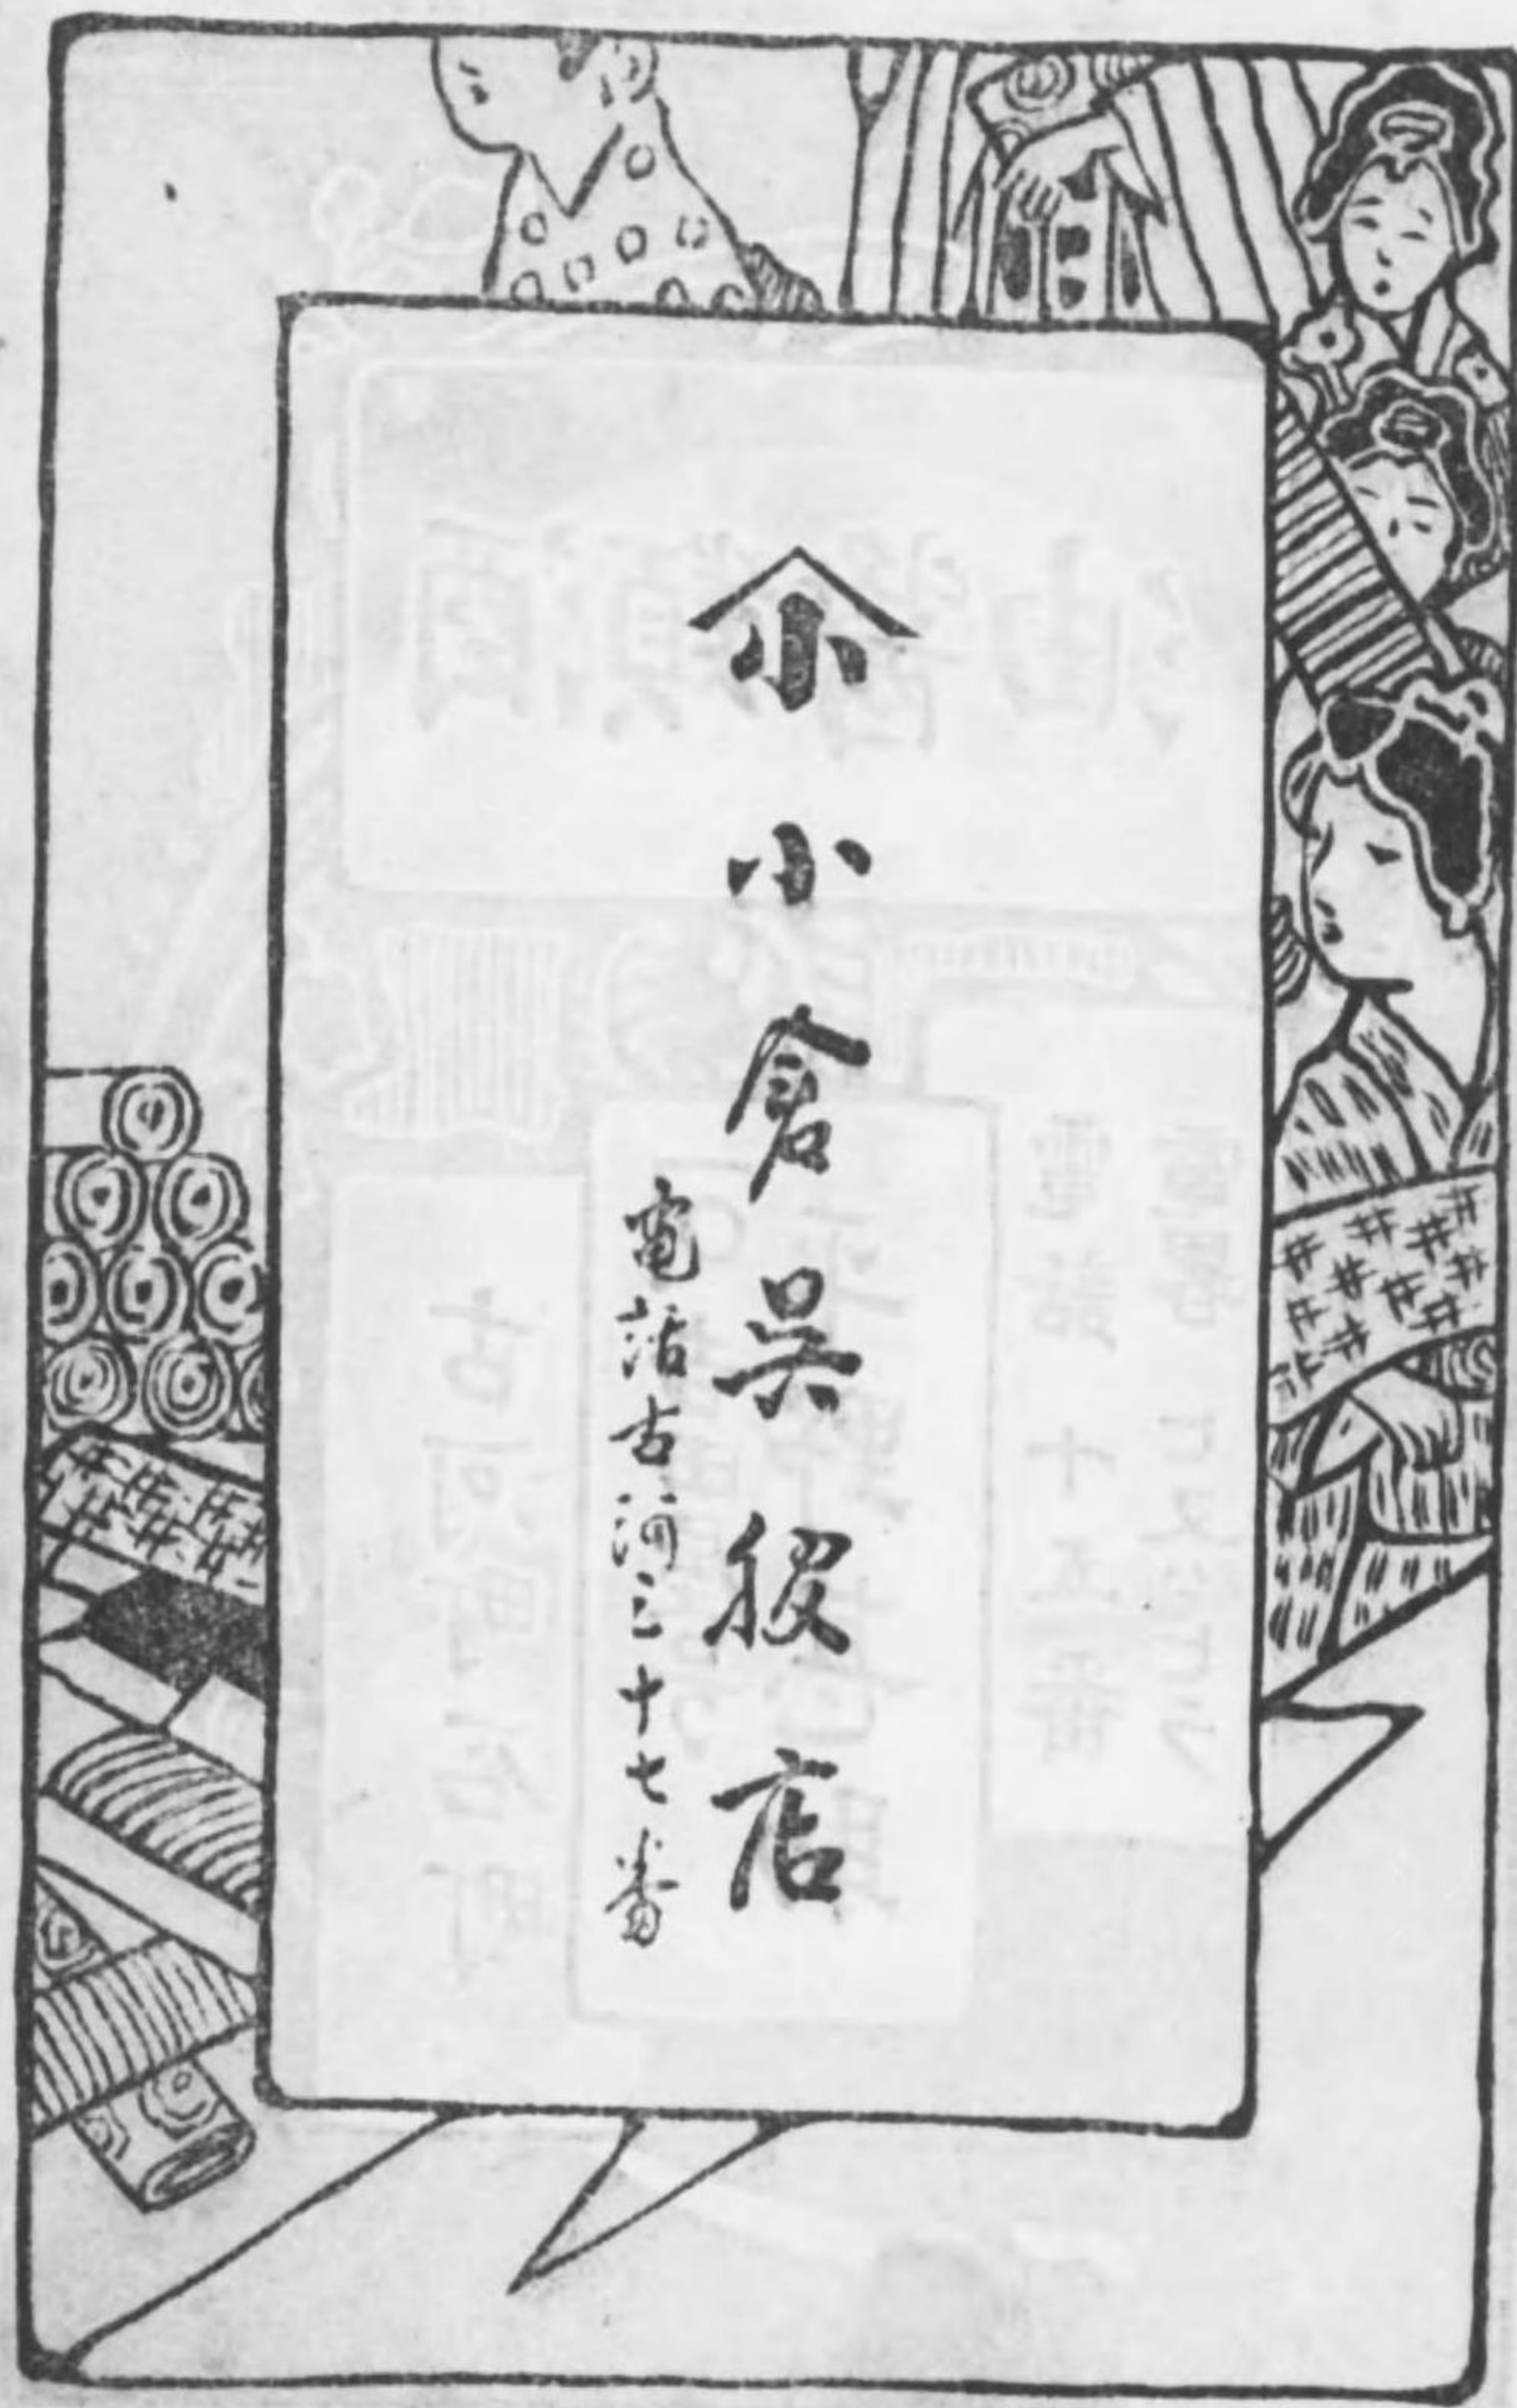 小
小倉呉服店
電話古河三十七番